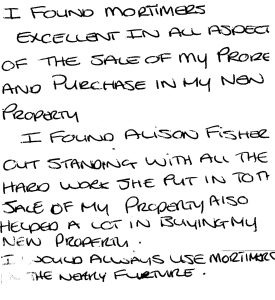 I FOUND MORTIMERS
EXCELLENT IN ALL ASPECT
OF THE SALE OF MY PROPE
AND PURCHASE IN MY NEW
PROPERTY
I FOUND ALISON FISHER
OUT STANDING WITH ALL THE
HARD WORK SHE PUT IN TOTH
SALE OF MY PROPERTY ALSO
HELPED A LOT IN BUYING MY
NEW PROPERTY.
I WOULD ALWAYS USE MORTIMERS
IN THE NEARLY FURTURE.